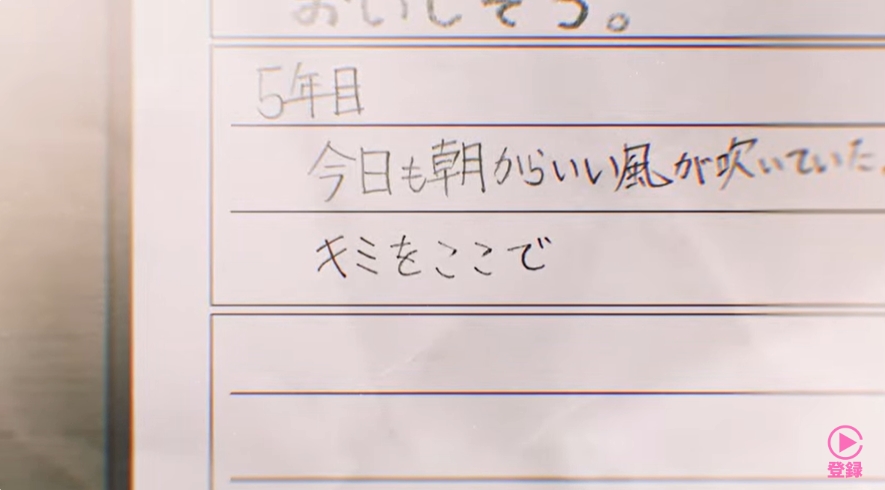 おいしそう。
5年目
今日も朝からいい風が吹いていた。
キミをここで
登録